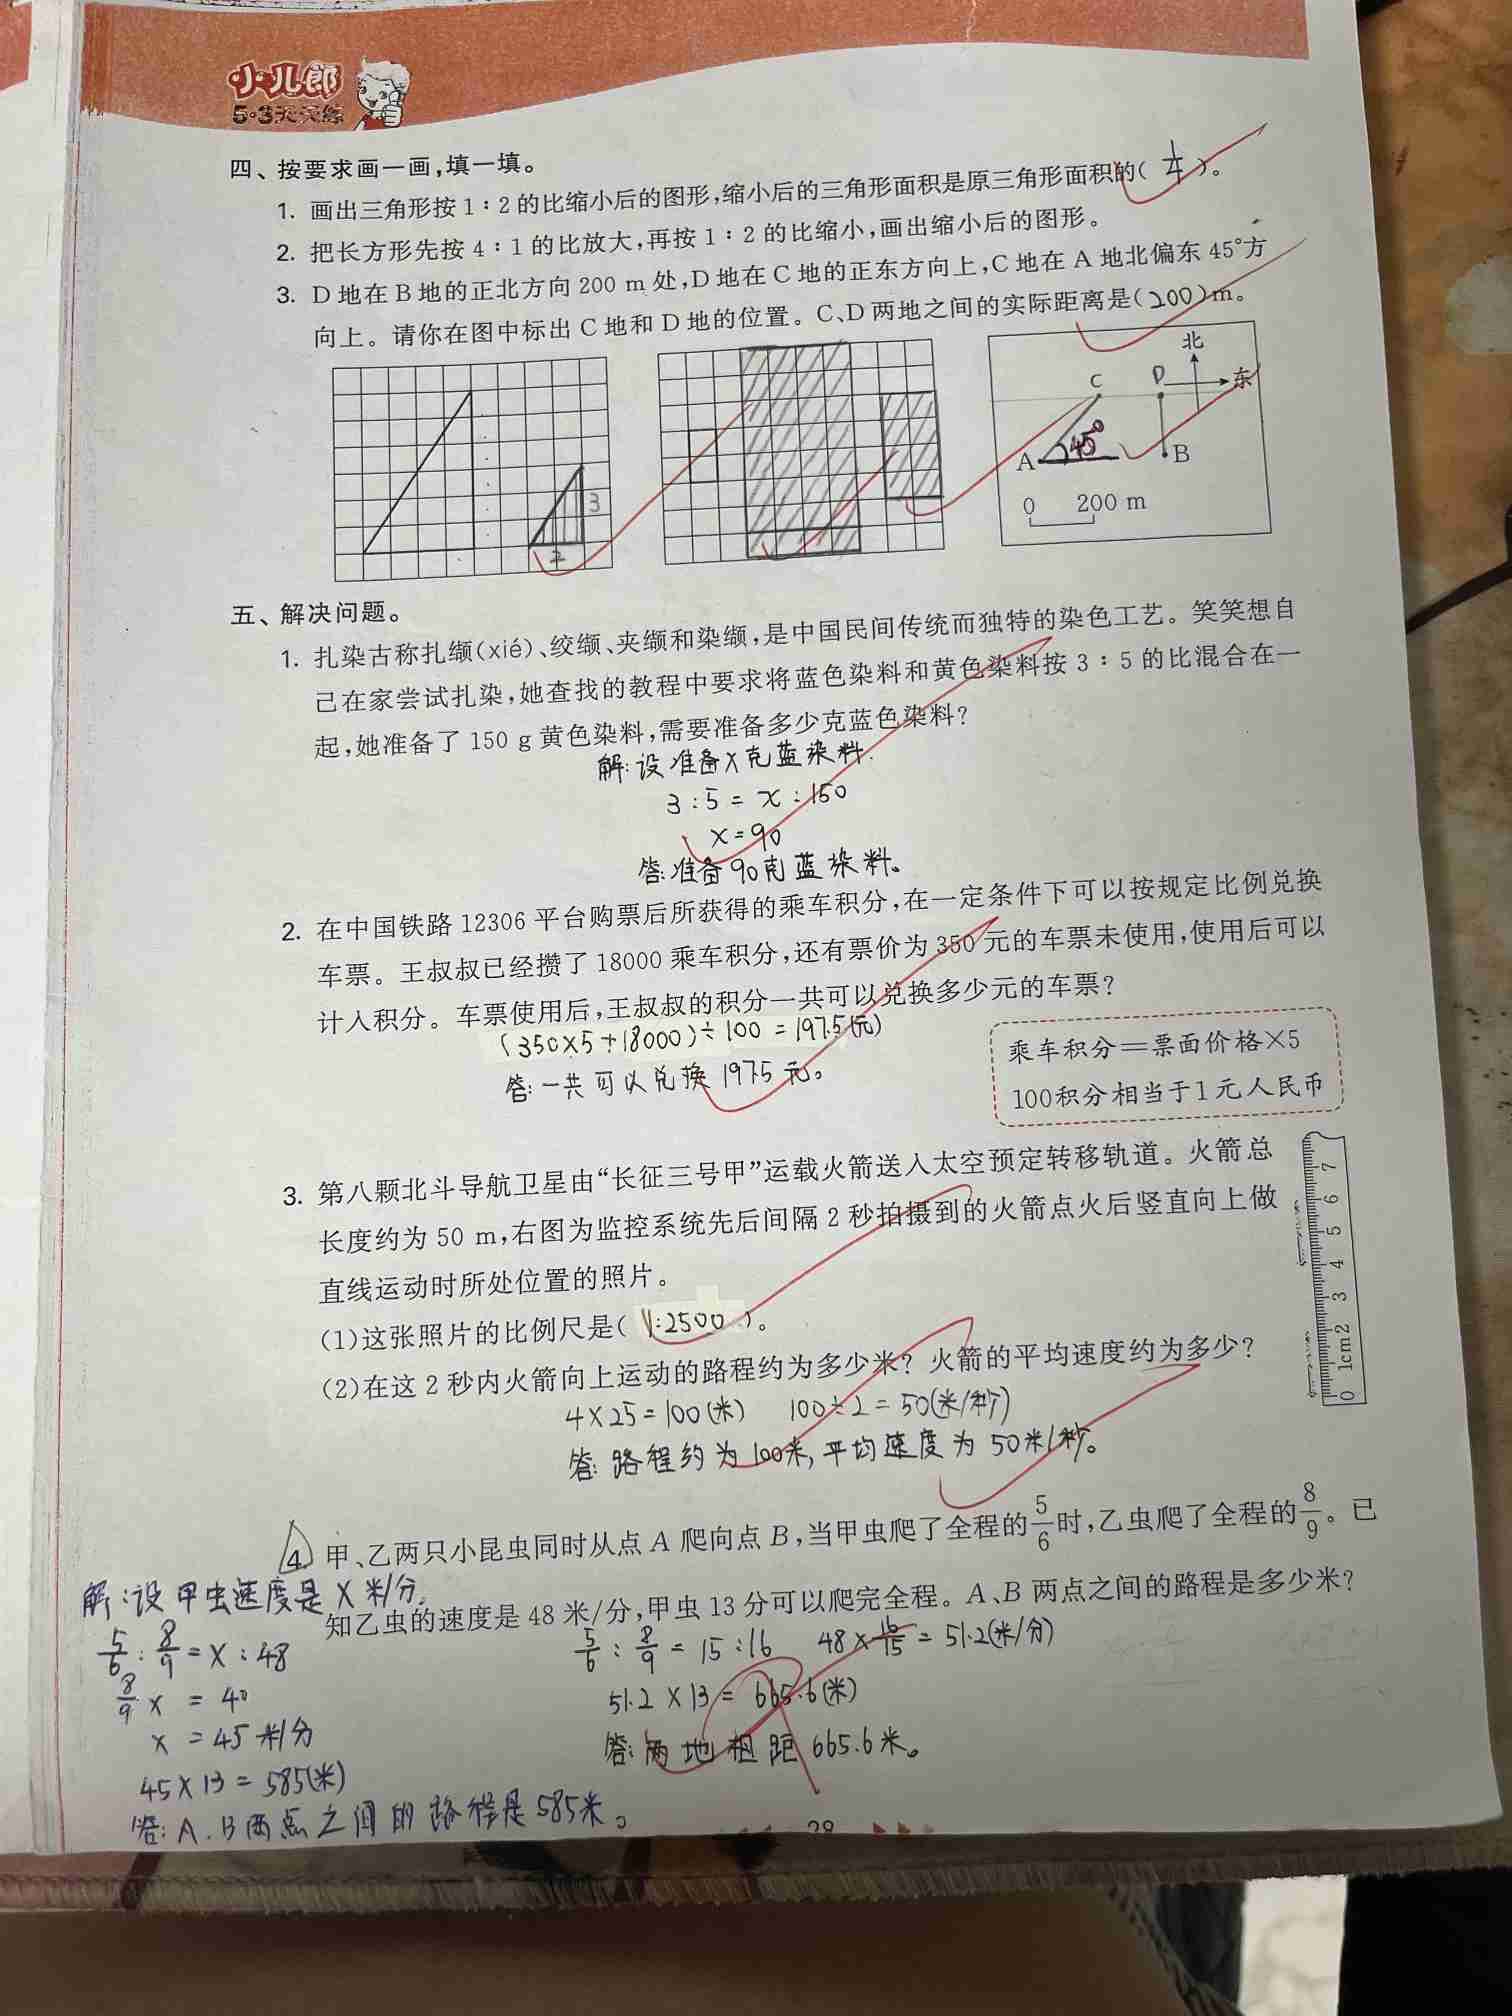 小儿郎
5·3天天练
四、按要求画一画,填一填。
1. 画出三角形按 1∶2 的比缩小后的图形,缩小后的三角形面积是原三角形面积的( 1/4 )。
2. 把长方形先按 4∶1 的比放大,再按 1∶2 的比缩小,画出缩小后的图形。
3. D 地在 B 地的正北方向 200 m 处,D 地在 C 地的正东方向上,C 地在 A 地北偏东 45°方
向上。请你在图中标出 C 地和 D 地的位置。C、D 两地之间的实际距离是(200)m。
3
2
北
东
C
D
A
45°
B
0 200 m
五、解决问题。
1. 扎染古称扎缬(xié)、绞缬、夹缬和染缬,是中国民间传统而独特的染色工艺。笑笑想自
己在家尝试扎染,她查找的教程中要求将蓝色染料和黄色染料按 3∶5 的比混合在一
起,她准备了 150 g 黄色染料,需要准备多少克蓝色染料?
解:设准备x克蓝染料.
3:5=x:150
x=90
答:准备90克蓝染料。
2. 在中国铁路 12306 平台购票后所获得的乘车积分,在一定条件下可以按规定比例兑换
车票。王叔叔已经攒了 18000 乘车积分,还有票价为 350 元的车票未使用,使用后可以
计入积分。车票使用后,王叔叔的积分一共可以兑换多少元的车票?
(350×5+18000)÷100=197.5(元)
答:一共可以兑换197.5元。
乘车积分=票面价格×5
100积分相当于1元人民币
3. 第八颗北斗导航卫星由“长征三号甲”运载火箭送入太空预定转移轨道。火箭总
长度约为 50 m,右图为监控系统先后间隔 2 秒拍摄到的火箭点火后竖直向上做
直线运动时所处位置的照片。
(1)这张照片的比例尺是( 1:2500 )。
(2)在这 2 秒内火箭向上运动的路程约为多少米?火箭的平均速度约为多少?
0 1cm 2 3 4 5 6 7
4×25=100(米) 100÷2=50(米/秒)
答:路程约为100米,平均速度为50米/秒。
4. 甲、乙两只小昆虫同时从点 A 爬向点 B,当甲虫爬了全程的5/6时,乙虫爬了全程的8/9。已
知乙虫的速度是 48 米/分,甲虫 13 分可以爬完全程。A、B 两点之间的路程是多少米?
5/6:8/9=15:16 48×16/15=51.2(米/分)
51.2×13=665.6(米)
答:两地相距665.6米。
解:设甲虫速度是x米/分.
5/6:8/9=x:48
8/9x=40
x=45米/分
45×13=585(米)
答:A.B两点之间的路程是585米。
28